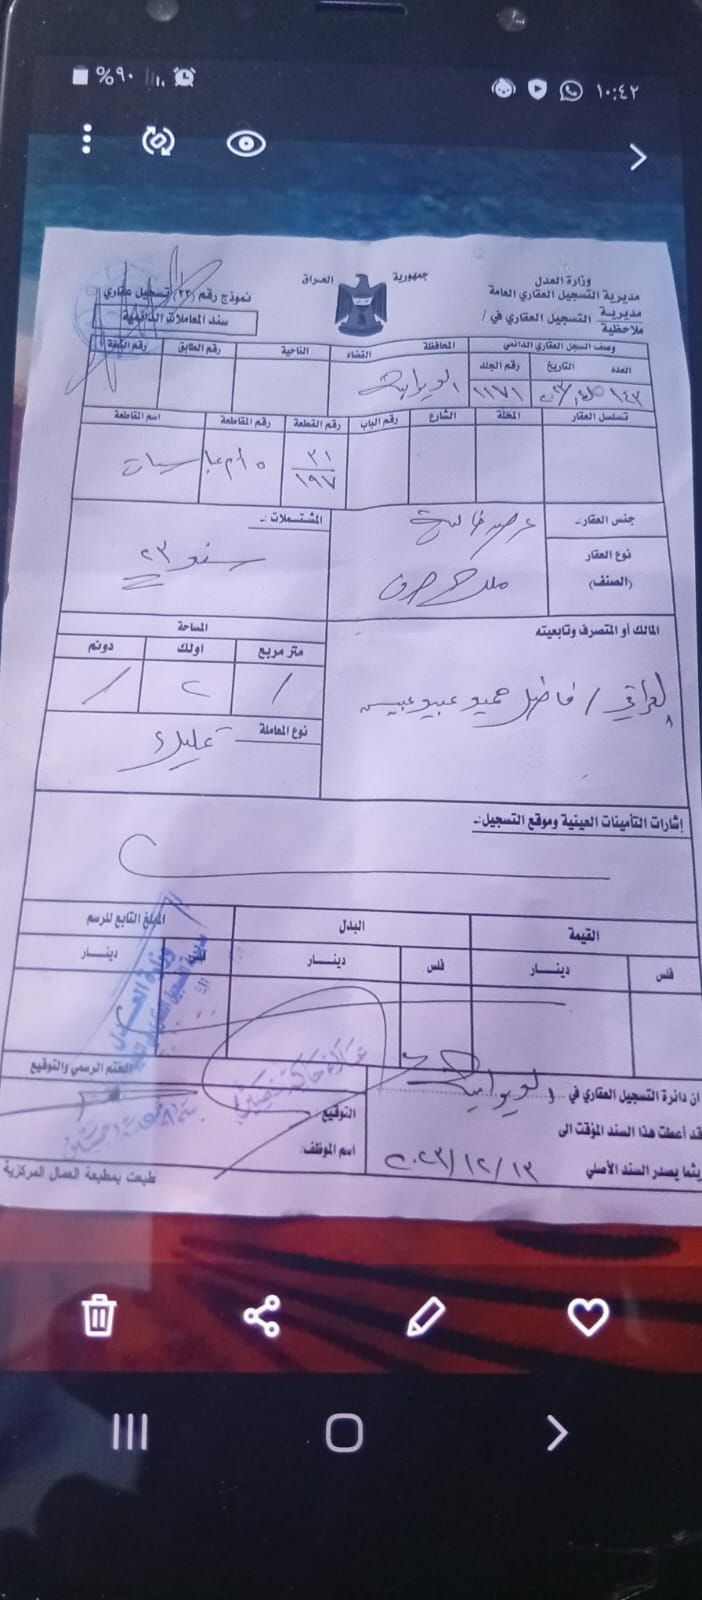 ١٠:٤٢
%٩٠
جمهورية العراق
وزارة العدل
مديرية التسجيل العقاري العامة
مديرية
ملاحظية
التسجيل العقاري في /
نموذج رقم (٢٣) تسجيل عقاري
سند المعاملات الدائمية
وصف السجل العقاري الدائمي
المحافظة
القضاء
الناحية
رقم الطابق
رقم الشقة
العدد
التاريخ
رقم الجلد
١٤٣
١١٧١
تسلسل العقار
المحلة
الشارع
رقم الباب
رقم القطعة
رقم المقاطعة
اسم المقاطعة
٣١
١٩٧
٥
جنس العقار:-
نوع العقار
(الصنف)
ملك صرف
المشتملات :-
المالك أو المتصرف وتابعيته
فاضل حميد عبيد عبيس
المساحة
متر مربع
اولك
دونم
/
٢
/
نوع المعاملة
إشارات التأمينات العينية وموقع التسجيل:-
القيمة
البدل
المبلغ التابع للرسم
فلس
دينار
فلس
دينار
دينار
ان دائرة التسجيل العقاري في
قد أعطت هذا السند المؤقت الى
يثما يصدر السند الأصلي
٢٠٢٣/١٢/١٣
التوقيع
اسم الموظف:
الختم الرسمي والتوقيع
وزارة العدل
طبعت بمطبعة العمال المركزية